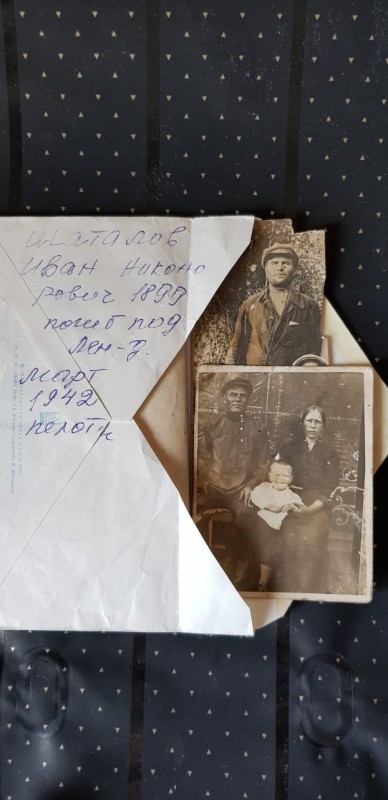 Шаталов
Иван Никоно
рович 1899
погиб под
Лен-д.
март
1942
пехотн